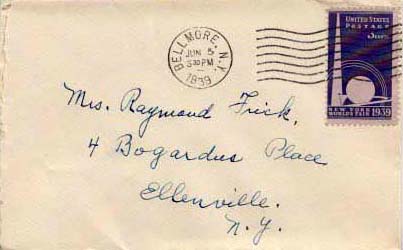 BELLMORE, N.Y.
JUN 5
3 30 PM
1939
UNITED STATES
POSTAGE
3 CENTS
NEW YORK 1939
WORLD'S FAIR
Mrs. Raymond Frick,
4 Bogardus Place
Ellenville.
N.Y.